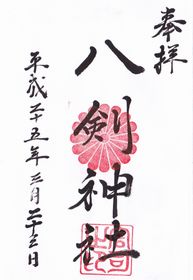 奉拝
八剣神社
平成二十五年三月二十三日